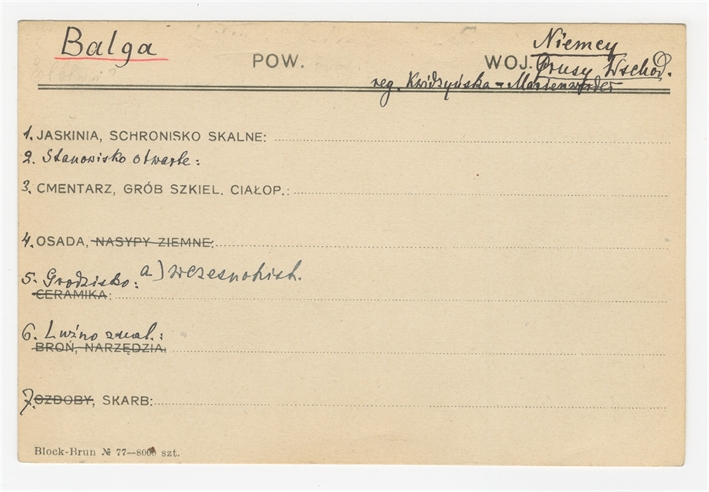 Balga POW. WOJ. Niemcy
Prusy Wschod.
reg. Kwidzyńska - Marienwerder
1. JASKINIA, SCHRONISKO SKALNE:
2. Stanowisko otwarte:
3. CMENTARZ, GRÓB SZKIEL. CIAŁOP.:
4. OSADA, NASYPY ZIEMNE:
5. Grodzisko: a) wczesnohist.
CERAMIKA:
6. Luźno znal.:
BROŃ, NARZĘDZIA:
7. OZDOBY, SKARB:
Block-Brun № 77—8000 szt.